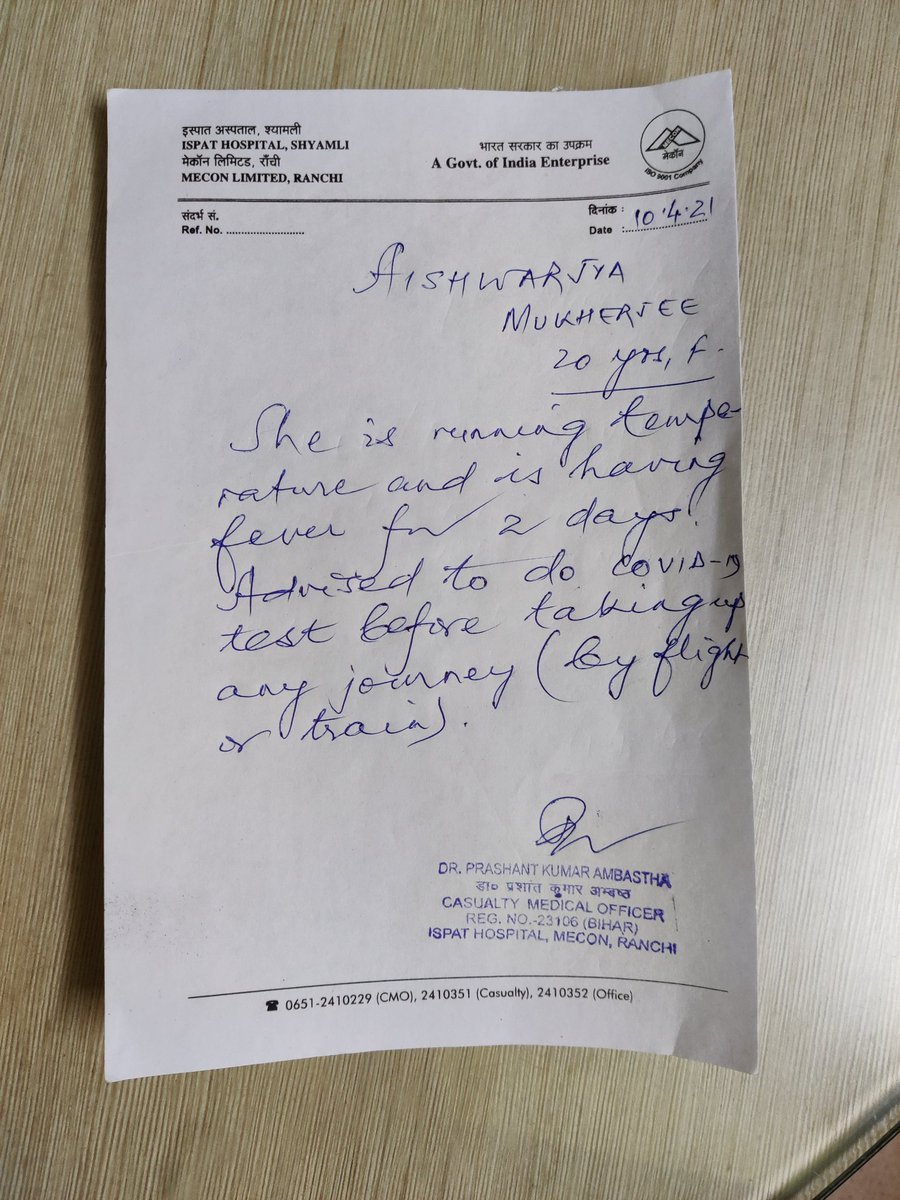 इस्पात अस्पताल, श्यामली
ISPAT HOSPITAL, SHYAMLI
मेकॉन लिमिटेड, राँची
MECON LIMITED, RANCHI
भारत सरकार का उपक्रम
A Govt. of India Enterprise
मेकॉन
ISO 9001 Company
संदर्भ सं.
Ref. No. ..........................
दिनांक :
Date : 10.4.21
AISHWARJYA
MUKHERJEE
20 yrs, F.
She is running tempe-
rature and is having
fever for 2 days.
Advised to do COVID-19
test before taking up
any journey (by flight
or train).
DR. PRASHANT KUMAR AMBASTHA
डा० प्रशांत कुमार अम्बष्ठ
CASUALTY MEDICAL OFFICER
REG. NO.-23106 (BIHAR)
ISPAT HOSPITAL, MECON, RANCHI
☎ 0651-2410229 (CMO), 2410351 (Casualty), 2410352 (Office)